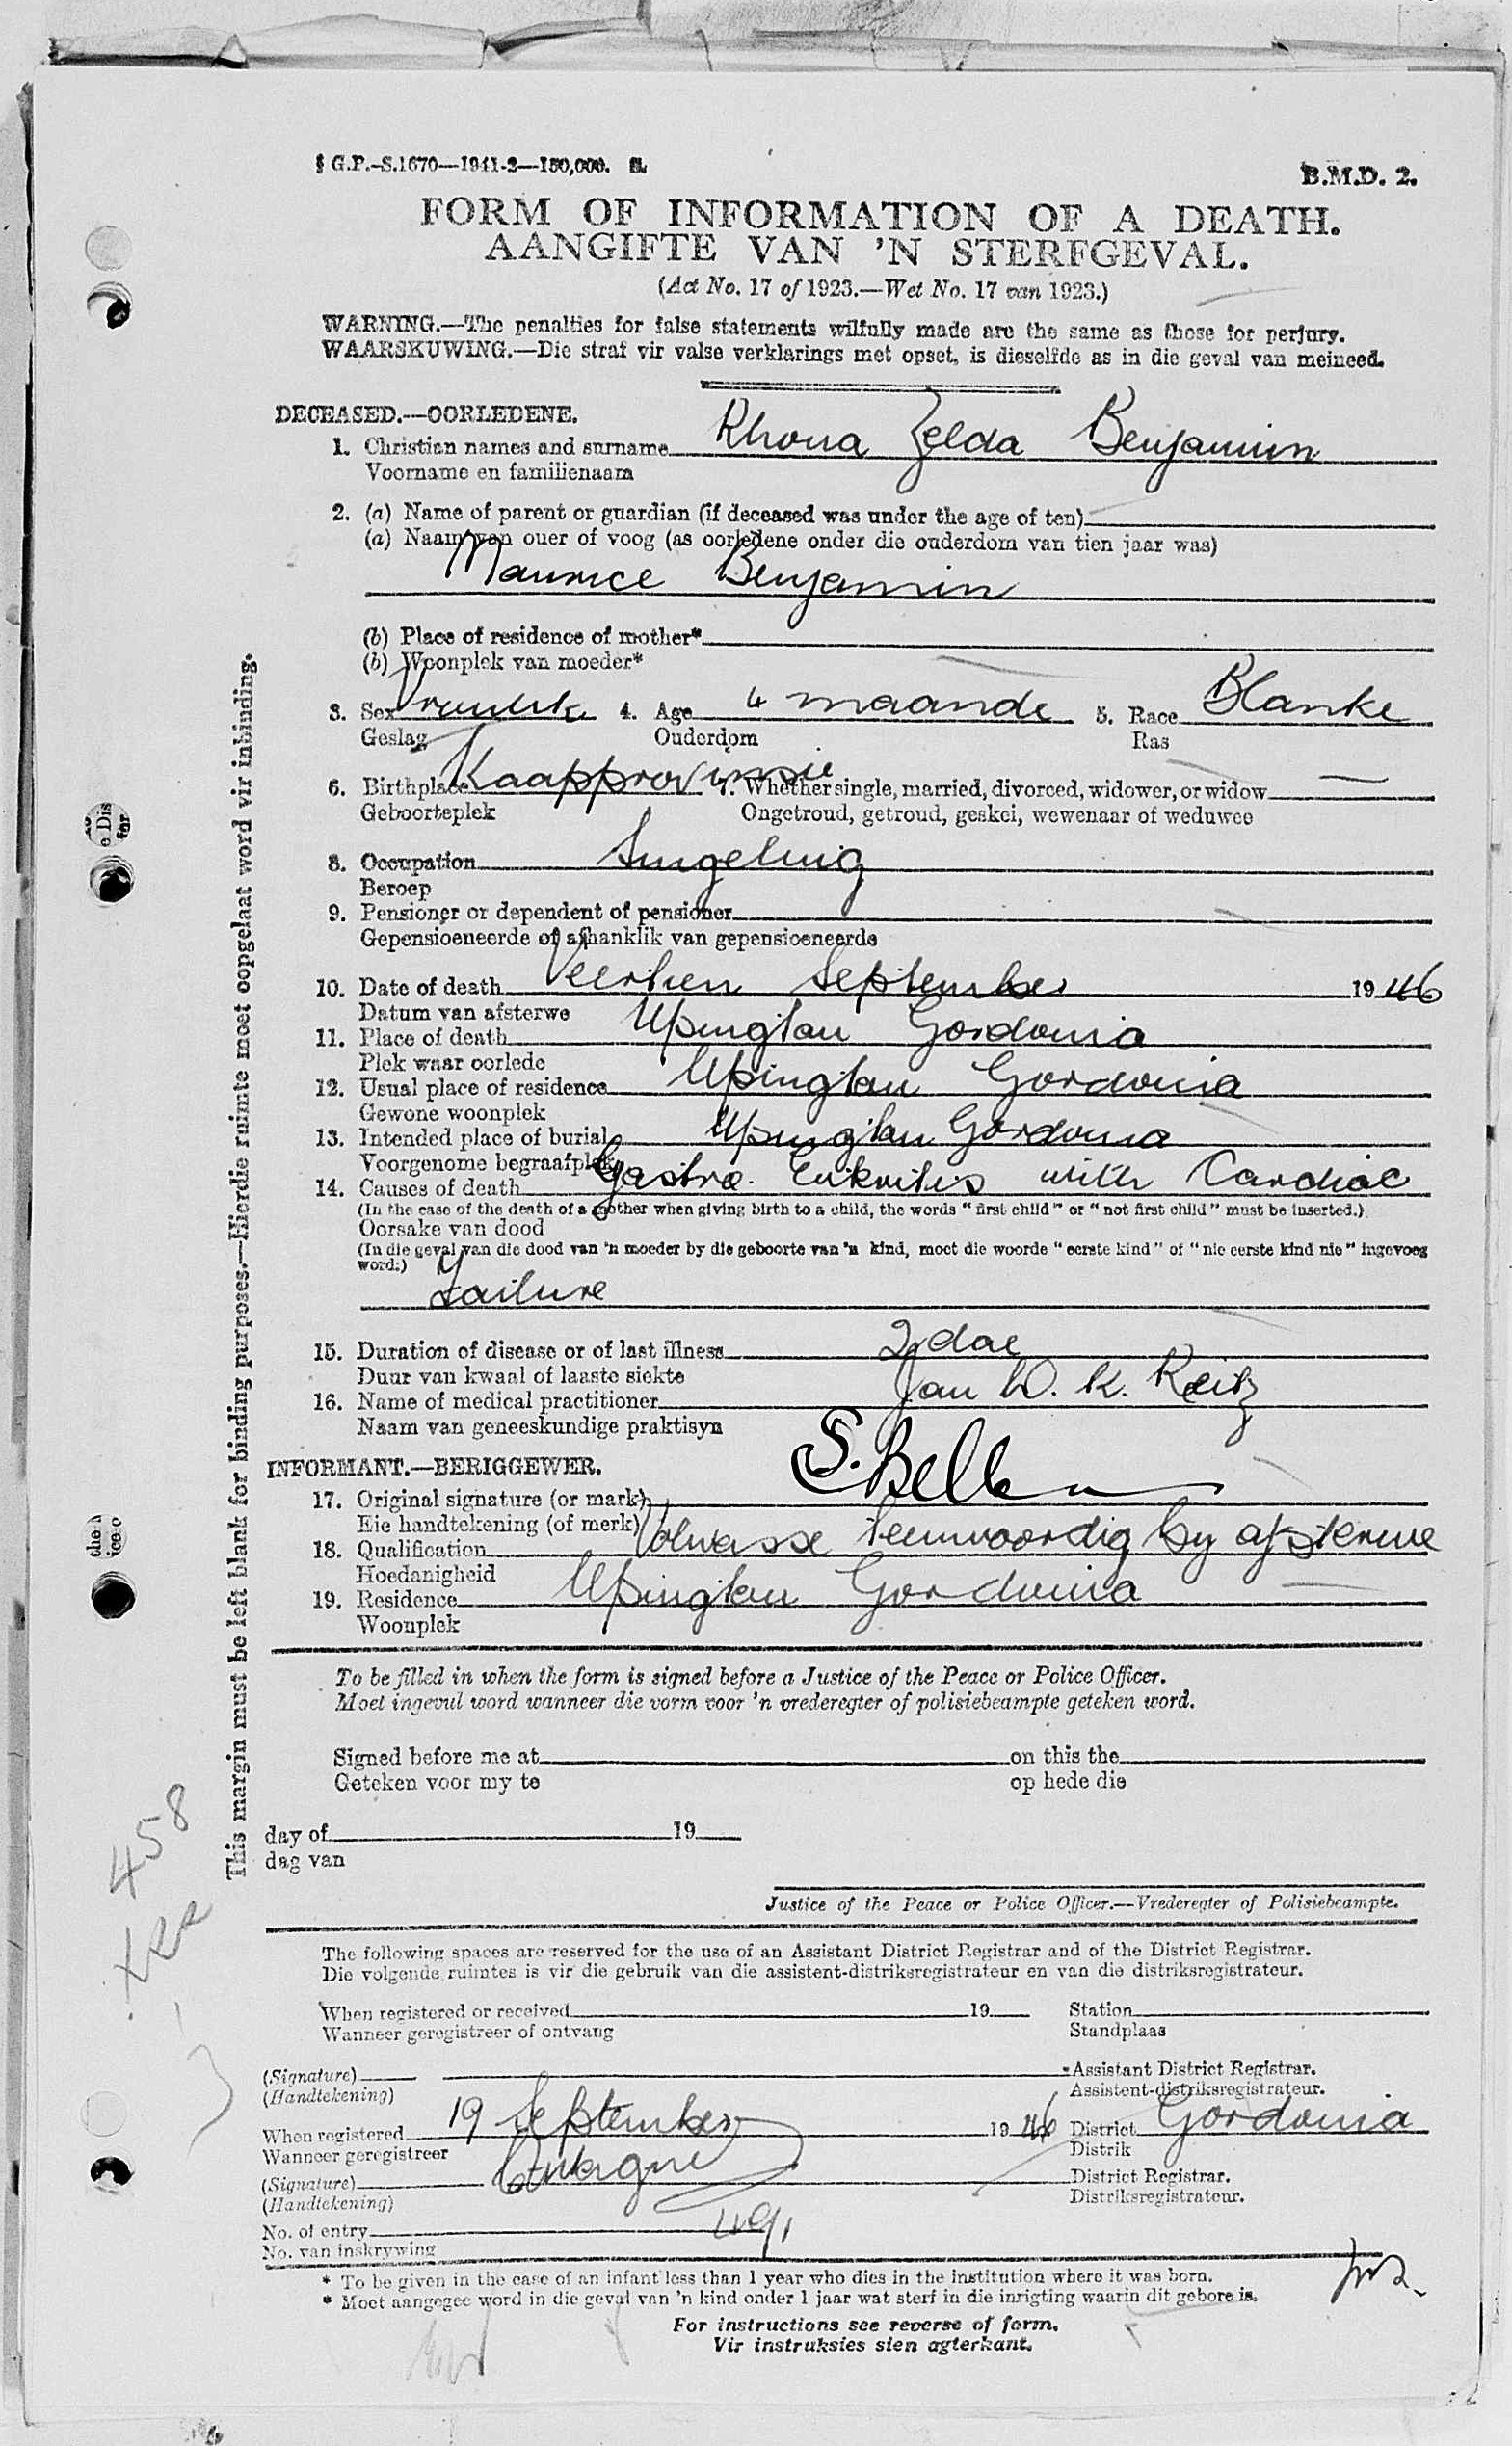 § G.P.-S.1670—1941-2—150,000. S.
B.M.D. 2.
FORM OF INFORMATION OF A DEATH.
AANGIFTE VAN 'N STERFGEVAL.
(Act No. 17 of 1923.—Wet No. 17 van 1923.)
WARNING.—The penalties for false statements wilfully made are the same as those for perjury.
WAARSKUWING.—Die straf vir valse verklarings met opset, is dieselfde as in die geval van meineed.
DECEASED.—OORLEDENE.
1. Christian names and surname Rhona Zelda Benjamin
Voorname en familienaam
2. (a) Name of parent or guardian (if deceased was under the age of ten)
(a) Naam van ouer of voog (as oorledene onder die ouderdom van tien jaar was)
Maurice Benjamin
(b) Place of residence of mother*
(b) Woonplek van moeder*
3. Sex Vroulik 4. Age 4 maande 5. Race Blanke
Geslag Ouderdom Ras
6. Birthplace Kaapprovinsie 7. Whether single, married, divorced, widower, or widow
Geboorteplek Ongetroud, getroud, geskei, wewenaar of weduwee
8. Occupation Suigeling
Beroep
9. Pensioner or dependent of pensioner
Gepensioeneerde of afhanklik van gepensioeneerde
10. Date of death Veertien September 1946
Datum van afsterwe
11. Place of death Upington Gordonia
Plek waar oorlede
12. Usual place of residence Upington Gordonia
Gewone woonplek
13. Intended place of burial Upington Gordonia
Voorgenome begraafplek
14. Causes of death Gastro. Enteritis with Cardiac
(In the case of the death of a mother when giving birth to a child, the words "first child" or "not first child" must be inserted.)
Oorsake van dood
(In die geval van die dood van 'n moeder by die geboorte van 'n kind, moet die woorde "eerste kind" of "nie eerste kind nie" ingevoeg
word.)
Failure
15. Duration of disease or of last illness 2 dae
Duur van kwaal of laaste siekte
16. Name of medical practitioner Jan W. K. Reitz
Naam van geneeskundige praktisyn
INFORMANT.—BERIGGEWER.
17. Original signature (or mark) S. Bell
Eie handtekening (of merk)
18. Qualification Volwasse teenwoordig by afsterwe
Hoedanigheid
19. Residence Upington Gordonia
Woonplek
To be filled in when the form is signed before a Justice of the Peace or Police Officer.
Moet ingevul word wanneer die vorm voor 'n vrederegter of polisiebeampte geteken word.
Signed before me at on this the
Geteken voor my te op hede die
day of 19
dag van
Justice of the Peace or Police Officer.—Vrederegter of Polisiebeampte.
The following spaces are reserved for the use of an Assistant District Registrar and of the District Registrar.
Die volgende ruimtes is vir die gebruik van die assistent-distriksregistrateur en van die distriksregistrateur.
When registered or received 19 Station
Wanneer geregistreer of ontvang Standplaas
(Signature) Assistant District Registrar.
(Handtekening) Assistent-distriksregistrateur.
When registered 19 September 1946 District Gordonia
Wanneer geregistreer Distrik
(Signature) District Registrar.
(Handtekening) Distriksregistrateur.
No. of entry 491
No. van inskrywing
* To be given in the case of an infant less than 1 year who dies in the institution where it was born.
* Moet aangegee word in die geval van 'n kind onder 1 jaar wat sterf in die inrigting waarin dit gebore is.
For instructions see reverse of form.
Vir instruksies sien agterkant.
This margin must be left blank for binding purposes.—Hierdie ruimte moet oopgelaat word vir inbinding.
458